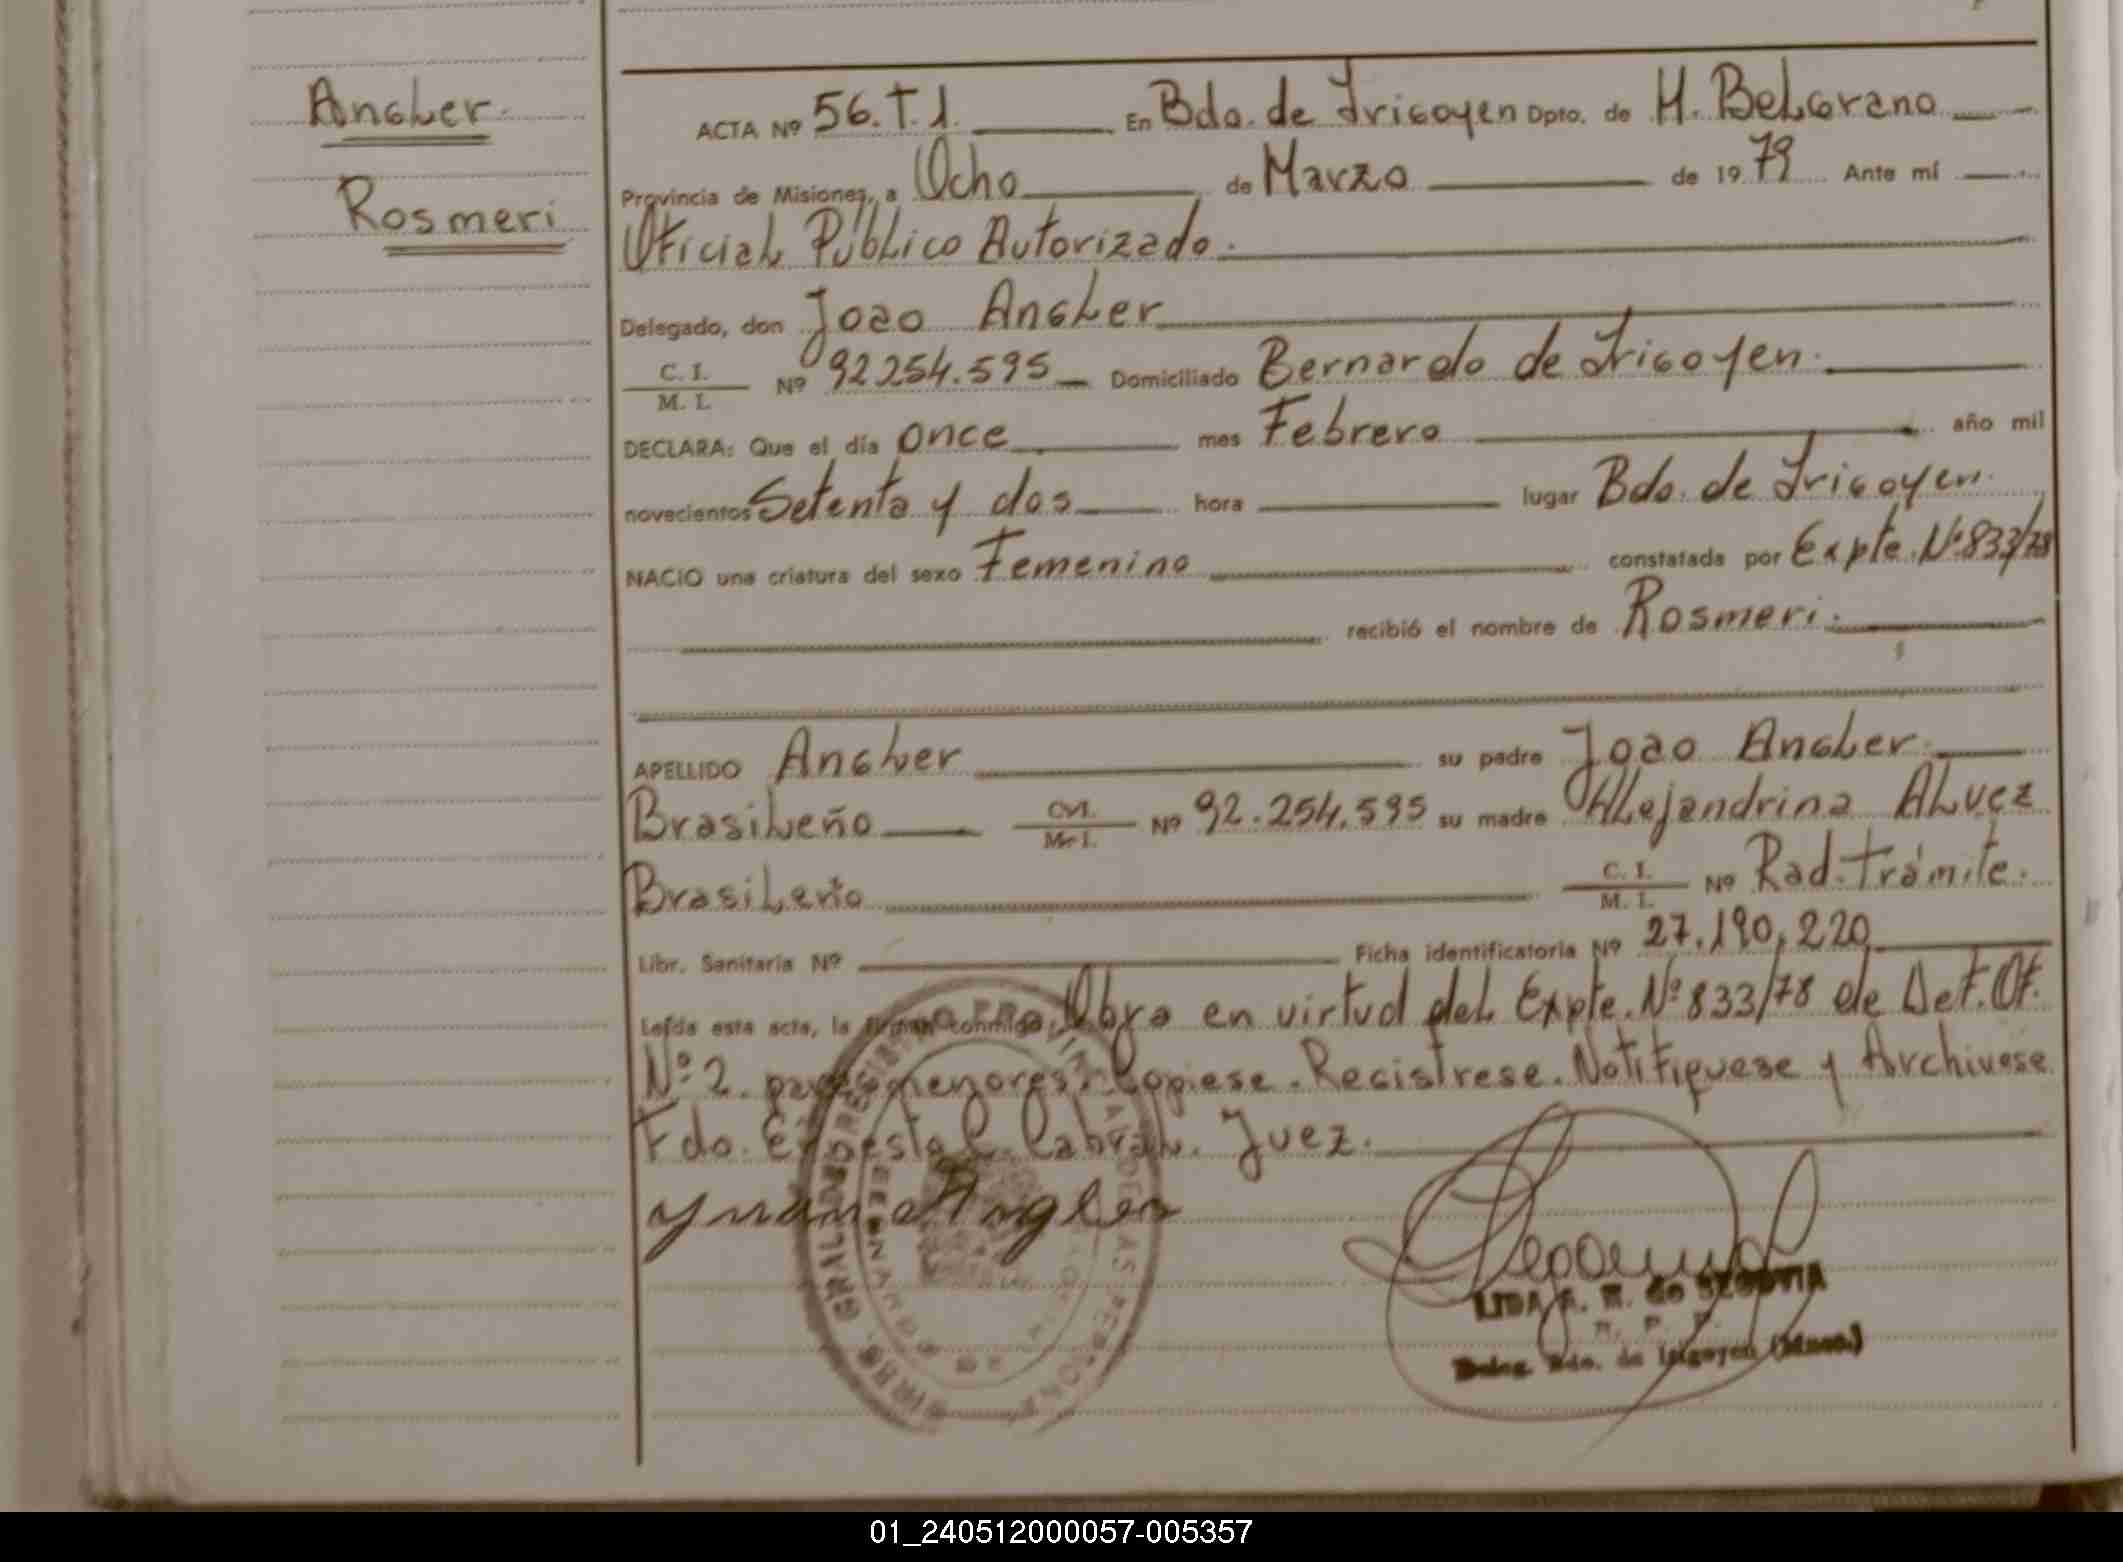 Angler
Rosmeri
ACTA Nº 56.T.1. En Bdo. de Irigoyen Dpto. de H. Belgrano
Provincia de Misiones, a Ocho de Marzo de 1979 Ante mí
Oficial Público Autorizado.
Delegado, don Joao Angler
C. I. / M. I. Nº 92254.595 Domiciliado Bernardo de Irigoyen.
DECLARA: Que el día once mes Febrero año mil
novecientos Setenta y dos hora lugar Bdo. de Irigoyen.
NACIO una criatura del sexo Femenino constatada por Expte. Nº 833/78
recibió el nombre de Rosmeri.
APELLIDO Angler su padre Joao Angler.
Brasileño Nº 92.254.595 su madre Alejandrina Alvez
Brasileño C. I. / M. I. Nº Rad. trámite.
Libr. Sanitaria Nº Ficha identificatoria Nº 27.190,220
Leída esta acta, la firman conmigo, Obra en virtud del Expte. Nº 833/78 de Def. Of.
Nº 2. para menores. Copiese. Registrese. Notifiquese y Archivese
Fdo. Ernesto C. Cabral. Juez.
Angler
LIDA A. R. de SEGOVIA
Deleg. Bdo. de Irigoyen (Mnes.)
REGISTRO PROVINCIAL DE LAS PERSONAS
01_240512000057-005357